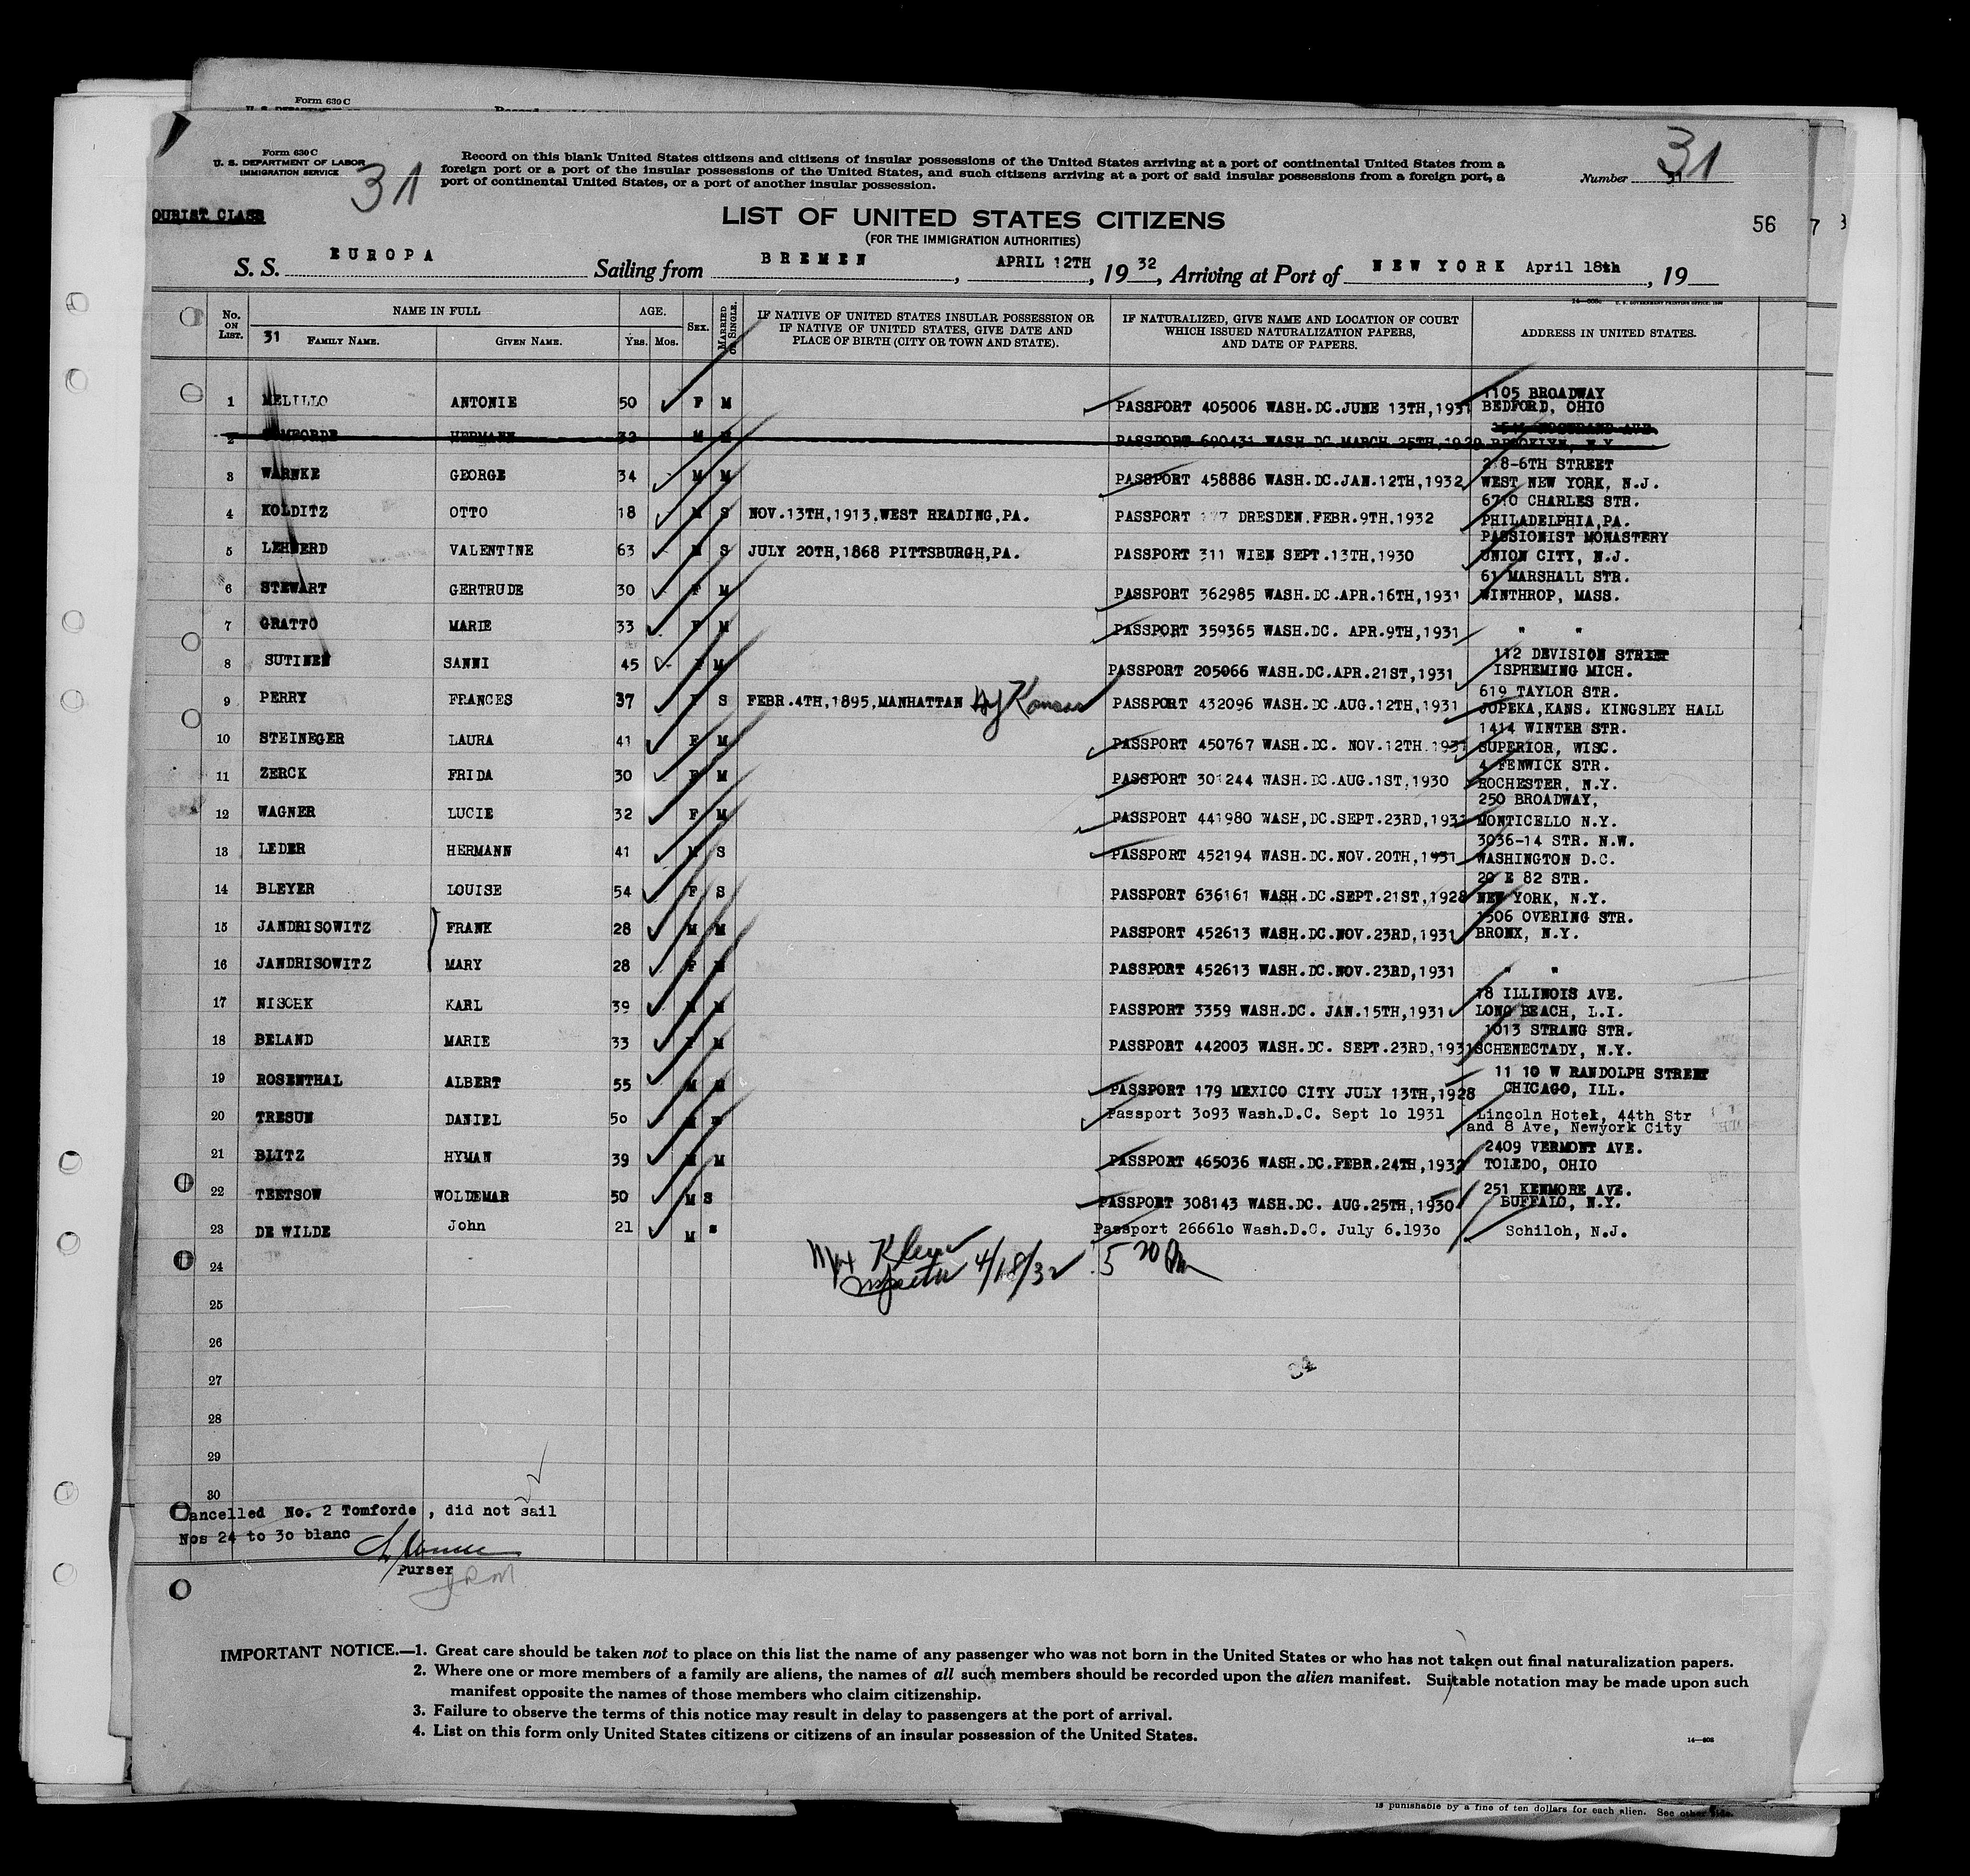 Form 630 C
Form 630 C
U. S. DEPARTMENT OF LABOR
IMMIGRATION SERVICE
31
Record on this blank United States citizens and citizens of insular possessions of the United States arriving at a port of continental United States from a
foreign port or a port of the insular possessions of the United States, and such citizens arriving at a port of said insular possessions from a foreign port, a
port of continental United States, or a port of another insular possession.
31
Number 31
OURIST CLASS
LIST OF UNITED STATES CITIZENS
56 7
(FOR THE IMMIGRATION AUTHORITIES)
S. S. EUROPA Sailing from BREMEN, APRIL 12TH, 1932, Arriving at Port of NEW YORK April 18th, 19
No. ON LIST. 31 NAME IN FULL FAMILY NAME. GIVEN NAME. AGE. Yrs. Mos. SEX. MARRIED OR SINGLE.
IF NATIVE OF UNITED STATES INSULAR POSSESSION OR
IF NATIVE OF UNITED STATES, GIVE DATE AND
PLACE OF BIRTH (CITY OR TOWN AND STATE).
IF NATURALIZED, GIVE NAME AND LOCATION OF COURT
WHICH ISSUED NATURALIZATION PAPERS,
AND DATE OF PAPERS.
ADDRESS IN UNITED STATES.
1 MELILLO ANTONIE 50 F M PASSPORT 405006 WASH.DC.JUNE 13TH,1931 1105 BROADWAY
BEDFORD, OHIO
2 TOMFORDE HERMANN 32 M M PASSPORT 690431 WASH DC MARCH 25TH,1929 BROOKLYN, N.Y.
3 WARNKE GEORGE 34 M M PASSPORT 458886 WASH.DC.JAN.12TH,1932 8-6TH STREET
WEST NEW YORK, N.J.
4 KOLDITZ OTTO 18 M S NOV.13TH,1913,WEST READING,PA. PASSPORT DRESDEN.FEBR.9TH.1932 6710 CHARLES STR.
PHILADELPHIA,PA.
5 LEHNERD VALENTINE 63 M S JULY 20TH,1868 PITTSBURGH,PA. PASSPORT 311 WIEN SEPT.13TH,1930 PASSIONIST MONASTERY
UNION CITY, N.J.
6 STEWART GERTRUDE 30 F M PASSPORT 362985 WASH.DC.APR.16TH,1931 61 MARSHALL STR.
WINTHROP, MASS.
7 GRATTO MARIE 33 F M PASSPORT 359365 WASH.DC. APR.9TH,1931 " "
8 SUTINEN SANNI 45 F M PASSPORT 205066 WASH.DC.APR.21ST,1931 112 DEVISION STREET
ISPHEMING MICH.
9 PERRY FRANCES 37 F S FEBR.4TH,1895,MANHATTAN Kansas PASSPORT 432096 WASH.DC.AUG.12TH,1931 619 TAYLOR STR.
JOPEKA,KANS. KINGSLEY HALL
10 STEINEGER LAURA 41 F M PASSPORT 450767 WASH.DC. NOV.12TH.1931 1414 WINTER STR.
SUPERIOR, WISC.
11 ZERCK FRIDA 30 F M PASSPORT 301244 WASH.DC.AUG.1ST,1930 4 FENWICK STR.
ROCHESTER, N.Y.
12 WAGNER LUCIE 32 F M PASSPORT 441980 WASH,DC.SEPT.23RD,1931 250 BROADWAY,
MONTICELLO N.Y.
13 LEDER HERMANN 41 M S PASSPORT 452194 WASH.DC.NOV.20TH,1931 3036-14 STR. N.W.
WASHINGTON D.C.
14 BLEYER LOUISE 54 F S PASSPORT 636161 WASH.DC.SEPT.21ST,1928 20 E 82 STR.
NEW YORK, N.Y.
15 JANDRISOWITZ FRANK 28 M M PASSPORT 452613 WASH.DC.NOV.23RD,1931 1506 OVERING STR.
BRONX, N.Y.
16 JANDRISOWITZ MARY 28 F M PASSPORT 452613 WASH.DC.NOV.23RD,1931 " "
17 NISCEK KARL 39 M M PASSPORT 3359 WASH.DC. JAN.15TH,1931 78 ILLINOIS AVE.
LONG BEACH, L.I.
18 BELAND MARIE 33 F M PASSPORT 442003 WASH.DC. SEPT.23RD,1931 1013 STRANG STR.
SCHENECTADY, N.Y.
19 ROSENTHAL ALBERT 55 M M PASSPORT 179 MEXICO CITY JULY 13TH,1928 11 10 W RANDOLPH STREET
CHICAGO, ILL.
20 TRESUN DANIEL 5o M m Passport 3o93 Wash.D.C. Sept 1o 1931 Lincoln Hotel, 44th Str
and 8 Ave, Newyork City
21 BLITZ HYMAN 39 M M PASSPORT 465036 WASH.DC.FEBR.24TH,1932 2409 VERMONT AVE.
TOLEDO, OHIO
22 TEETSOW WOLDEMAR 50 M S PASSPORT 308143 WASH.DC. AUG.25TH,1930 251 KENMORE AVE.
BUFFALO, N.Y.
23 DE WILDE John 21 M s Passport 26661o Wash.D.C. July 6.193o Schiloh, N.J.
24 Klein 5 20 Pm
Inspector 4/18/32
25
26
27
28
29
30
Cancelled No. 2 Tomforde , did not sail
Nos 24 to 3o blanc
Purser
IMPORTANT NOTICE.—1. Great care should be taken not to place on this list the name of any passenger who was not born in the United States or who has not taken out final naturalization papers.
2. Where one or more members of a family are aliens, the names of all such members should be recorded upon the alien manifest. Suitable notation may be made upon such
manifest opposite the names of those members who claim citizenship.
3. Failure to observe the terms of this notice may result in delay to passengers at the port of arrival.
4. List on this form only United States citizens or citizens of an insular possession of the United States.
14—808
is punishable by a fine of ten dollars for each alien. See other side.